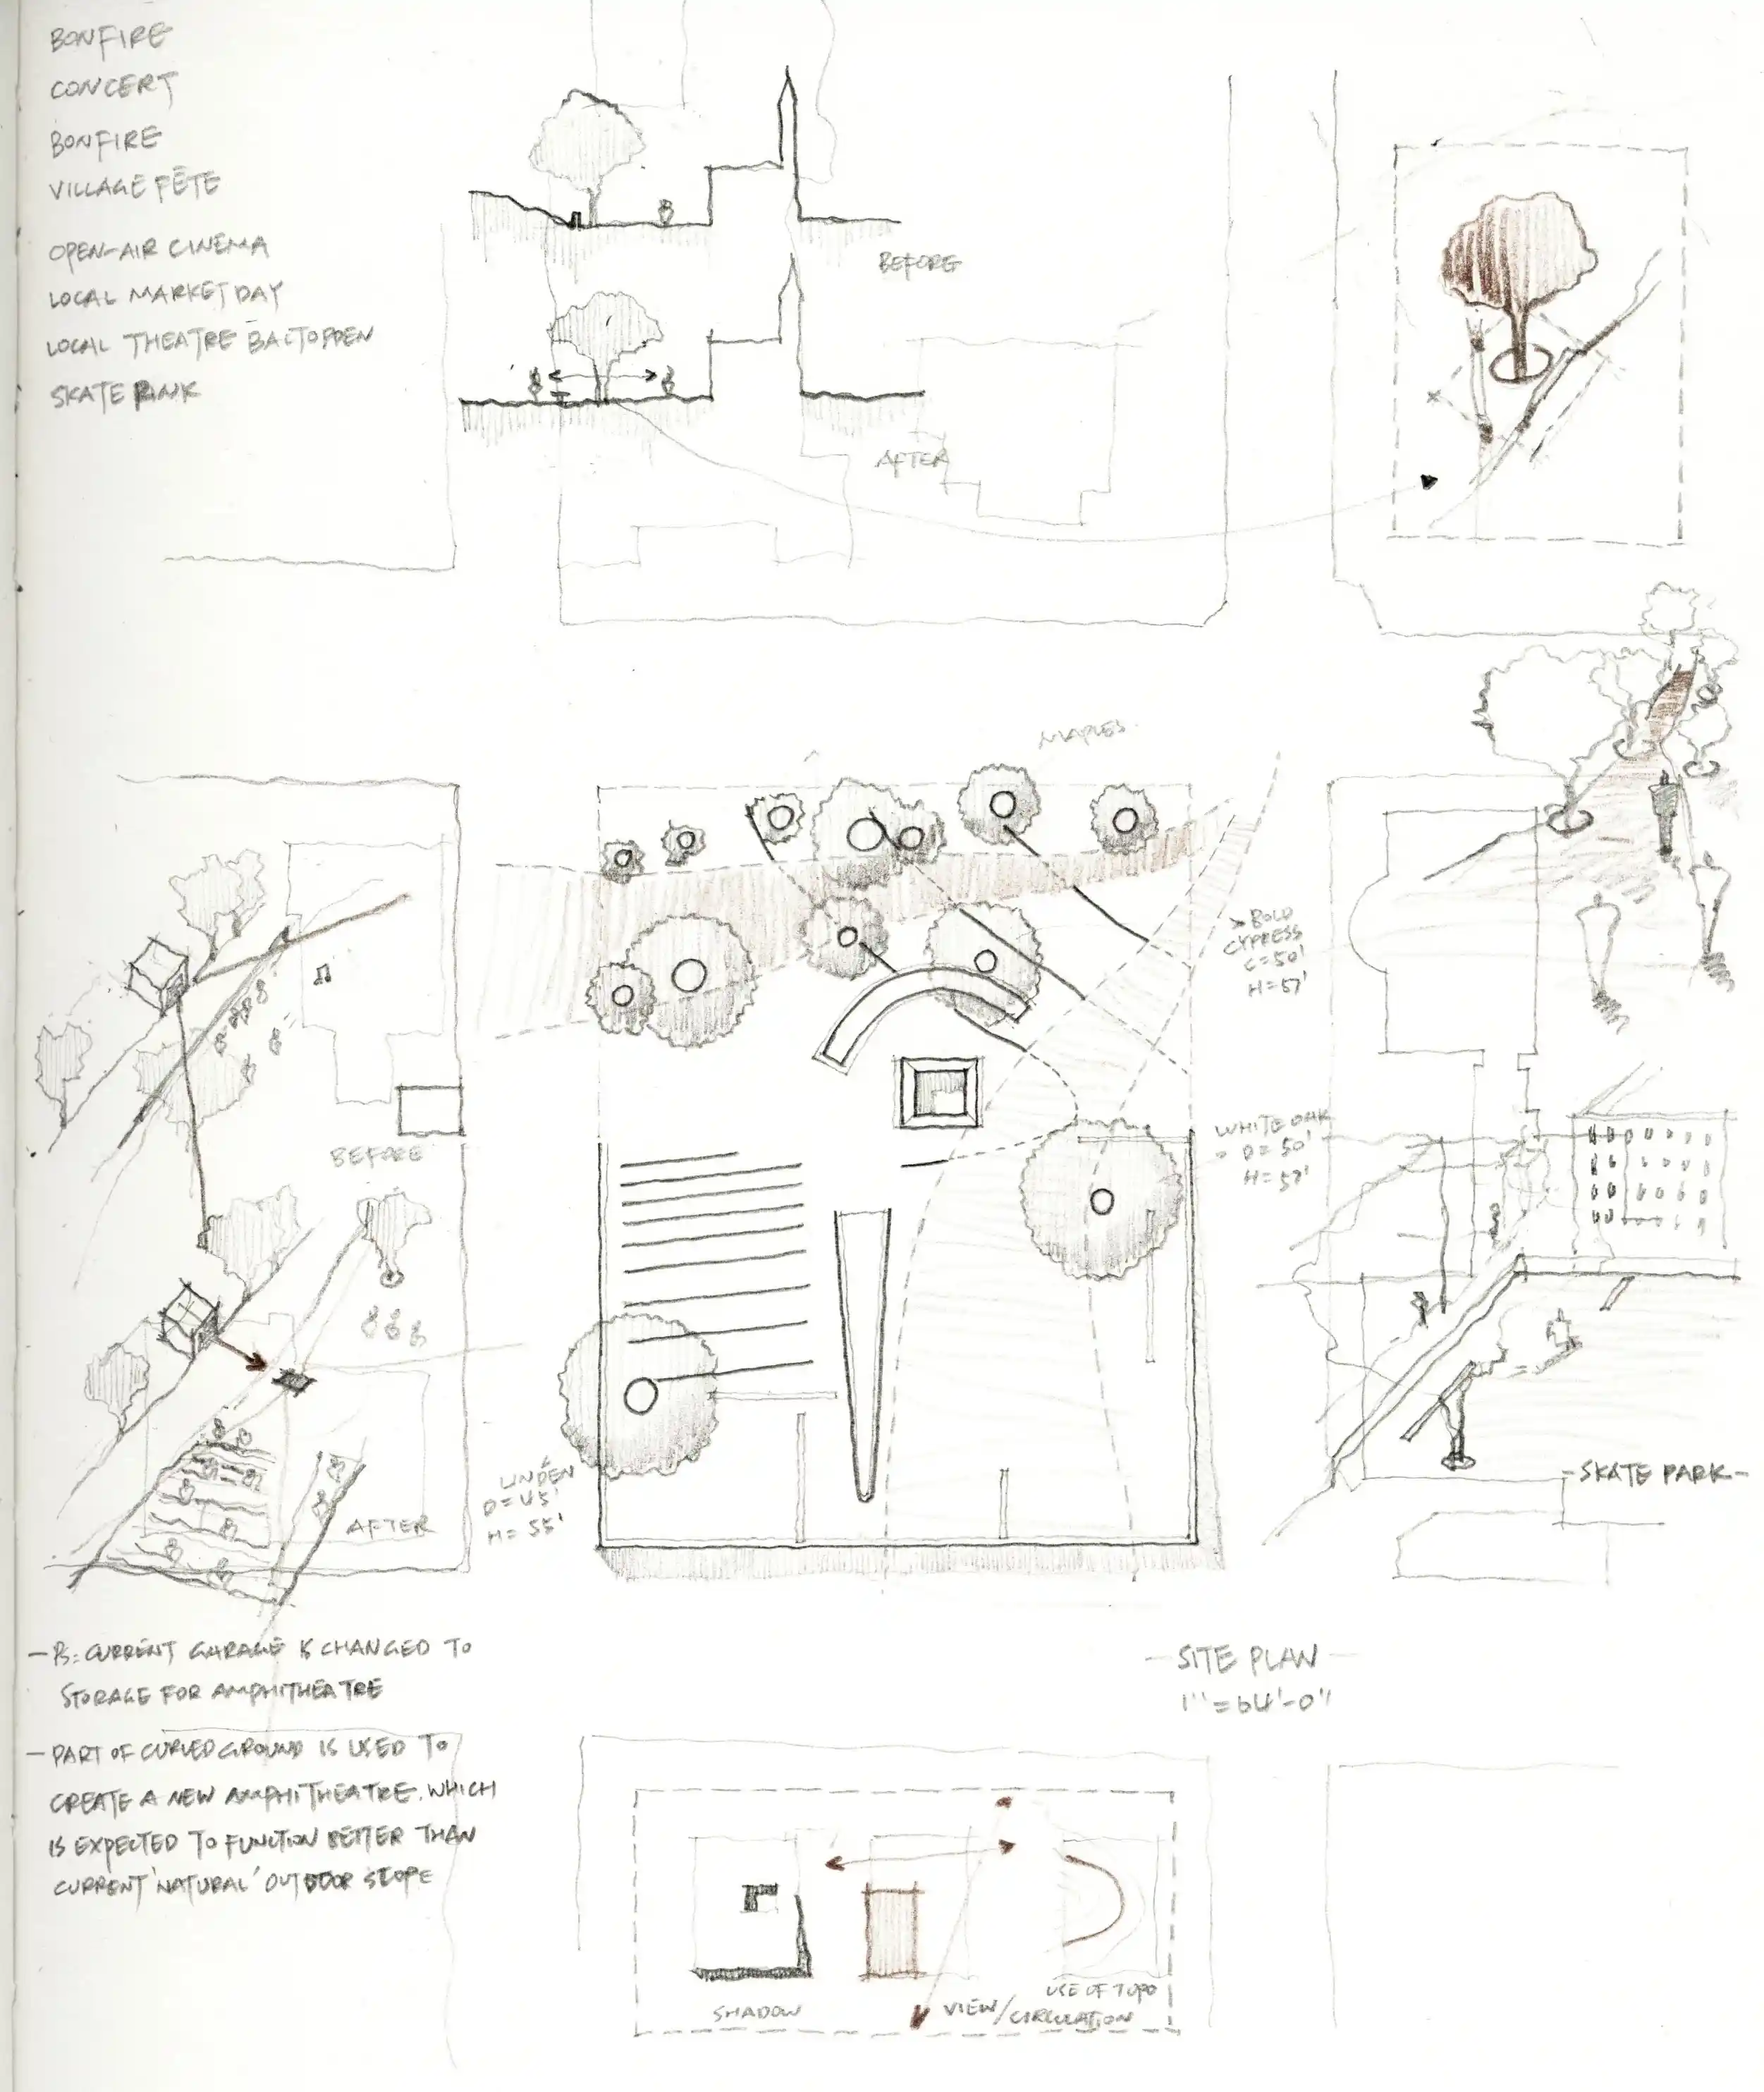 BONFIRE
CONCERT
BONFIRE
VILLAGE FÊTE
OPEN-AIR CINEMA
LOCAL MARKET DAY
LOCAL THEATRE
SKATE RINK
BEFORE
AFTER
MAPLES
BOLD
CYPRESS
C=50'
H=57'
WHITE OAK
D=50'
H=57'
BEFORE
AFTER
LINDEN
D=45'
H=55'
-SKATE PARK-
-PS: CURRENT GARAGE IS CHANGED TO
STORAGE FOR AMPHITHEATRE
-PART OF CURVED GROUND IS USED TO
CREATE A NEW AMPHITHEATRE. WHICH
IS EXPECTED TO FUNCTION BETTER THAN
CURRENT 'NATURAL' OUTDOOR SLOPE
-SITE PLAN-
1"=64'-0"
SHADOW
VIEW/CIRCULATION
USE OF TOPO